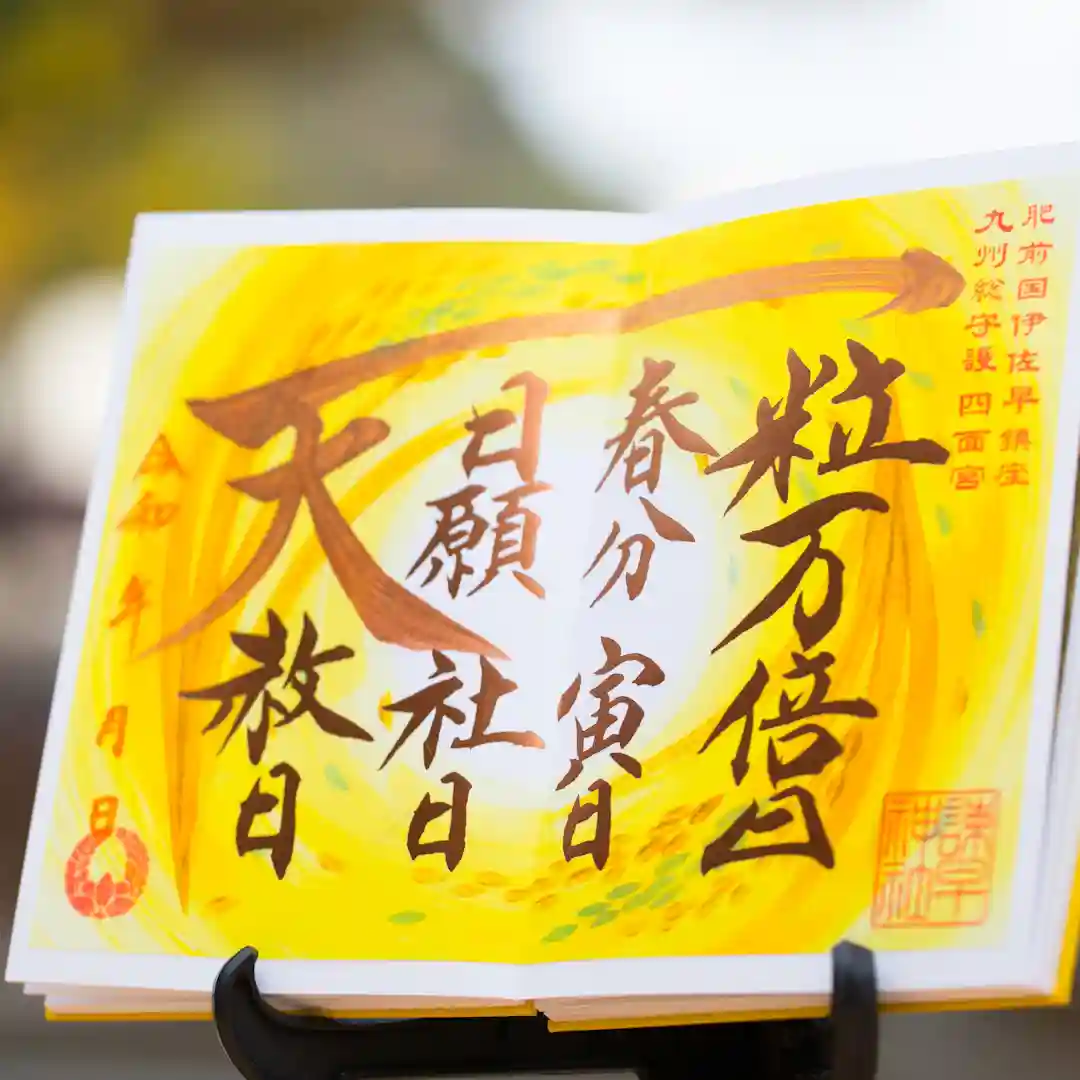 肥前国伊佐早鎮座
九州総守護 四面宮
一粒万倍日
春分 寅日
日願 社日
天赦日
令和 年 月 日
諫早
神社